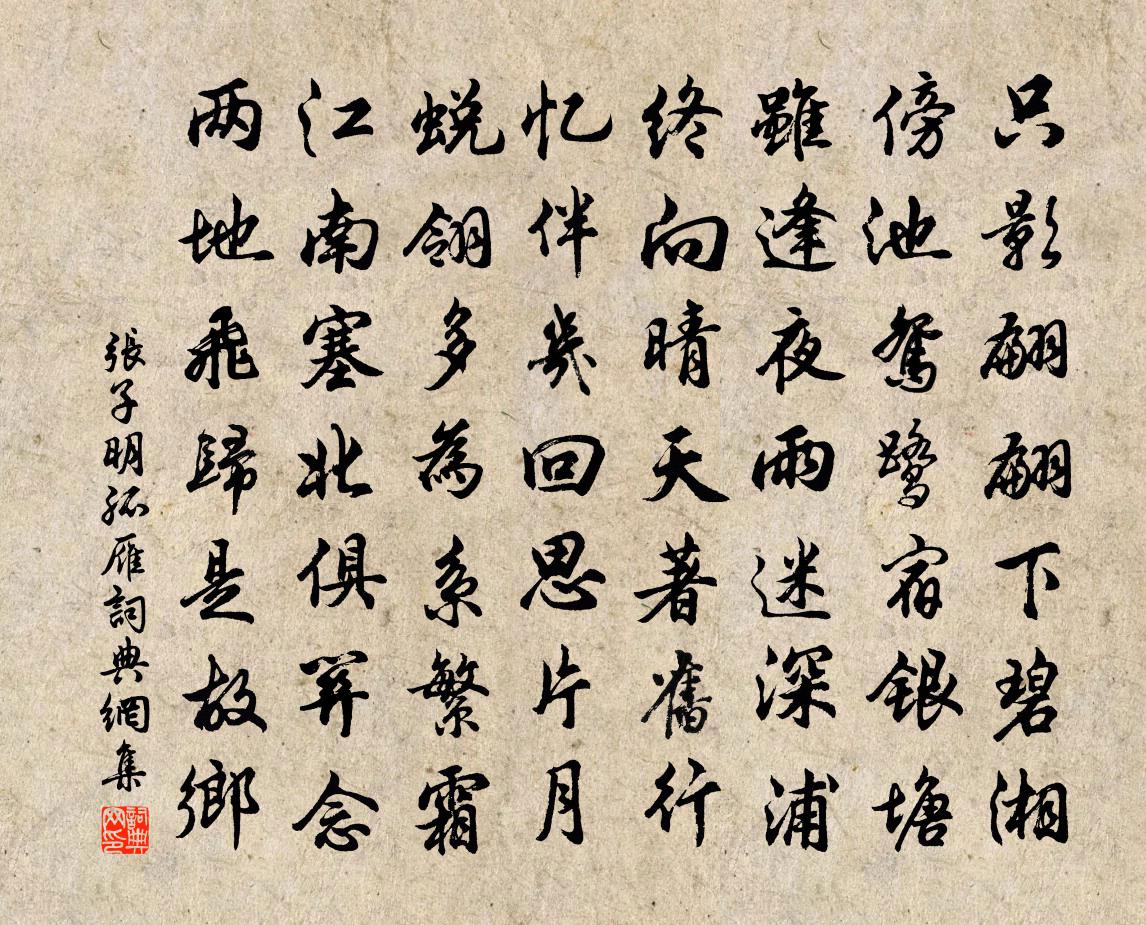 只影翩翩下碧湘
傍池鸳鹭宿银塘
雖逢夜雨迷深浦
终向晴天著舊行
忆伴几回思片月
蜕翎多為系繁霜
江南塞北俱关念
两地飛歸是故鄉
張子明孤雁詞典網集
詞典网印